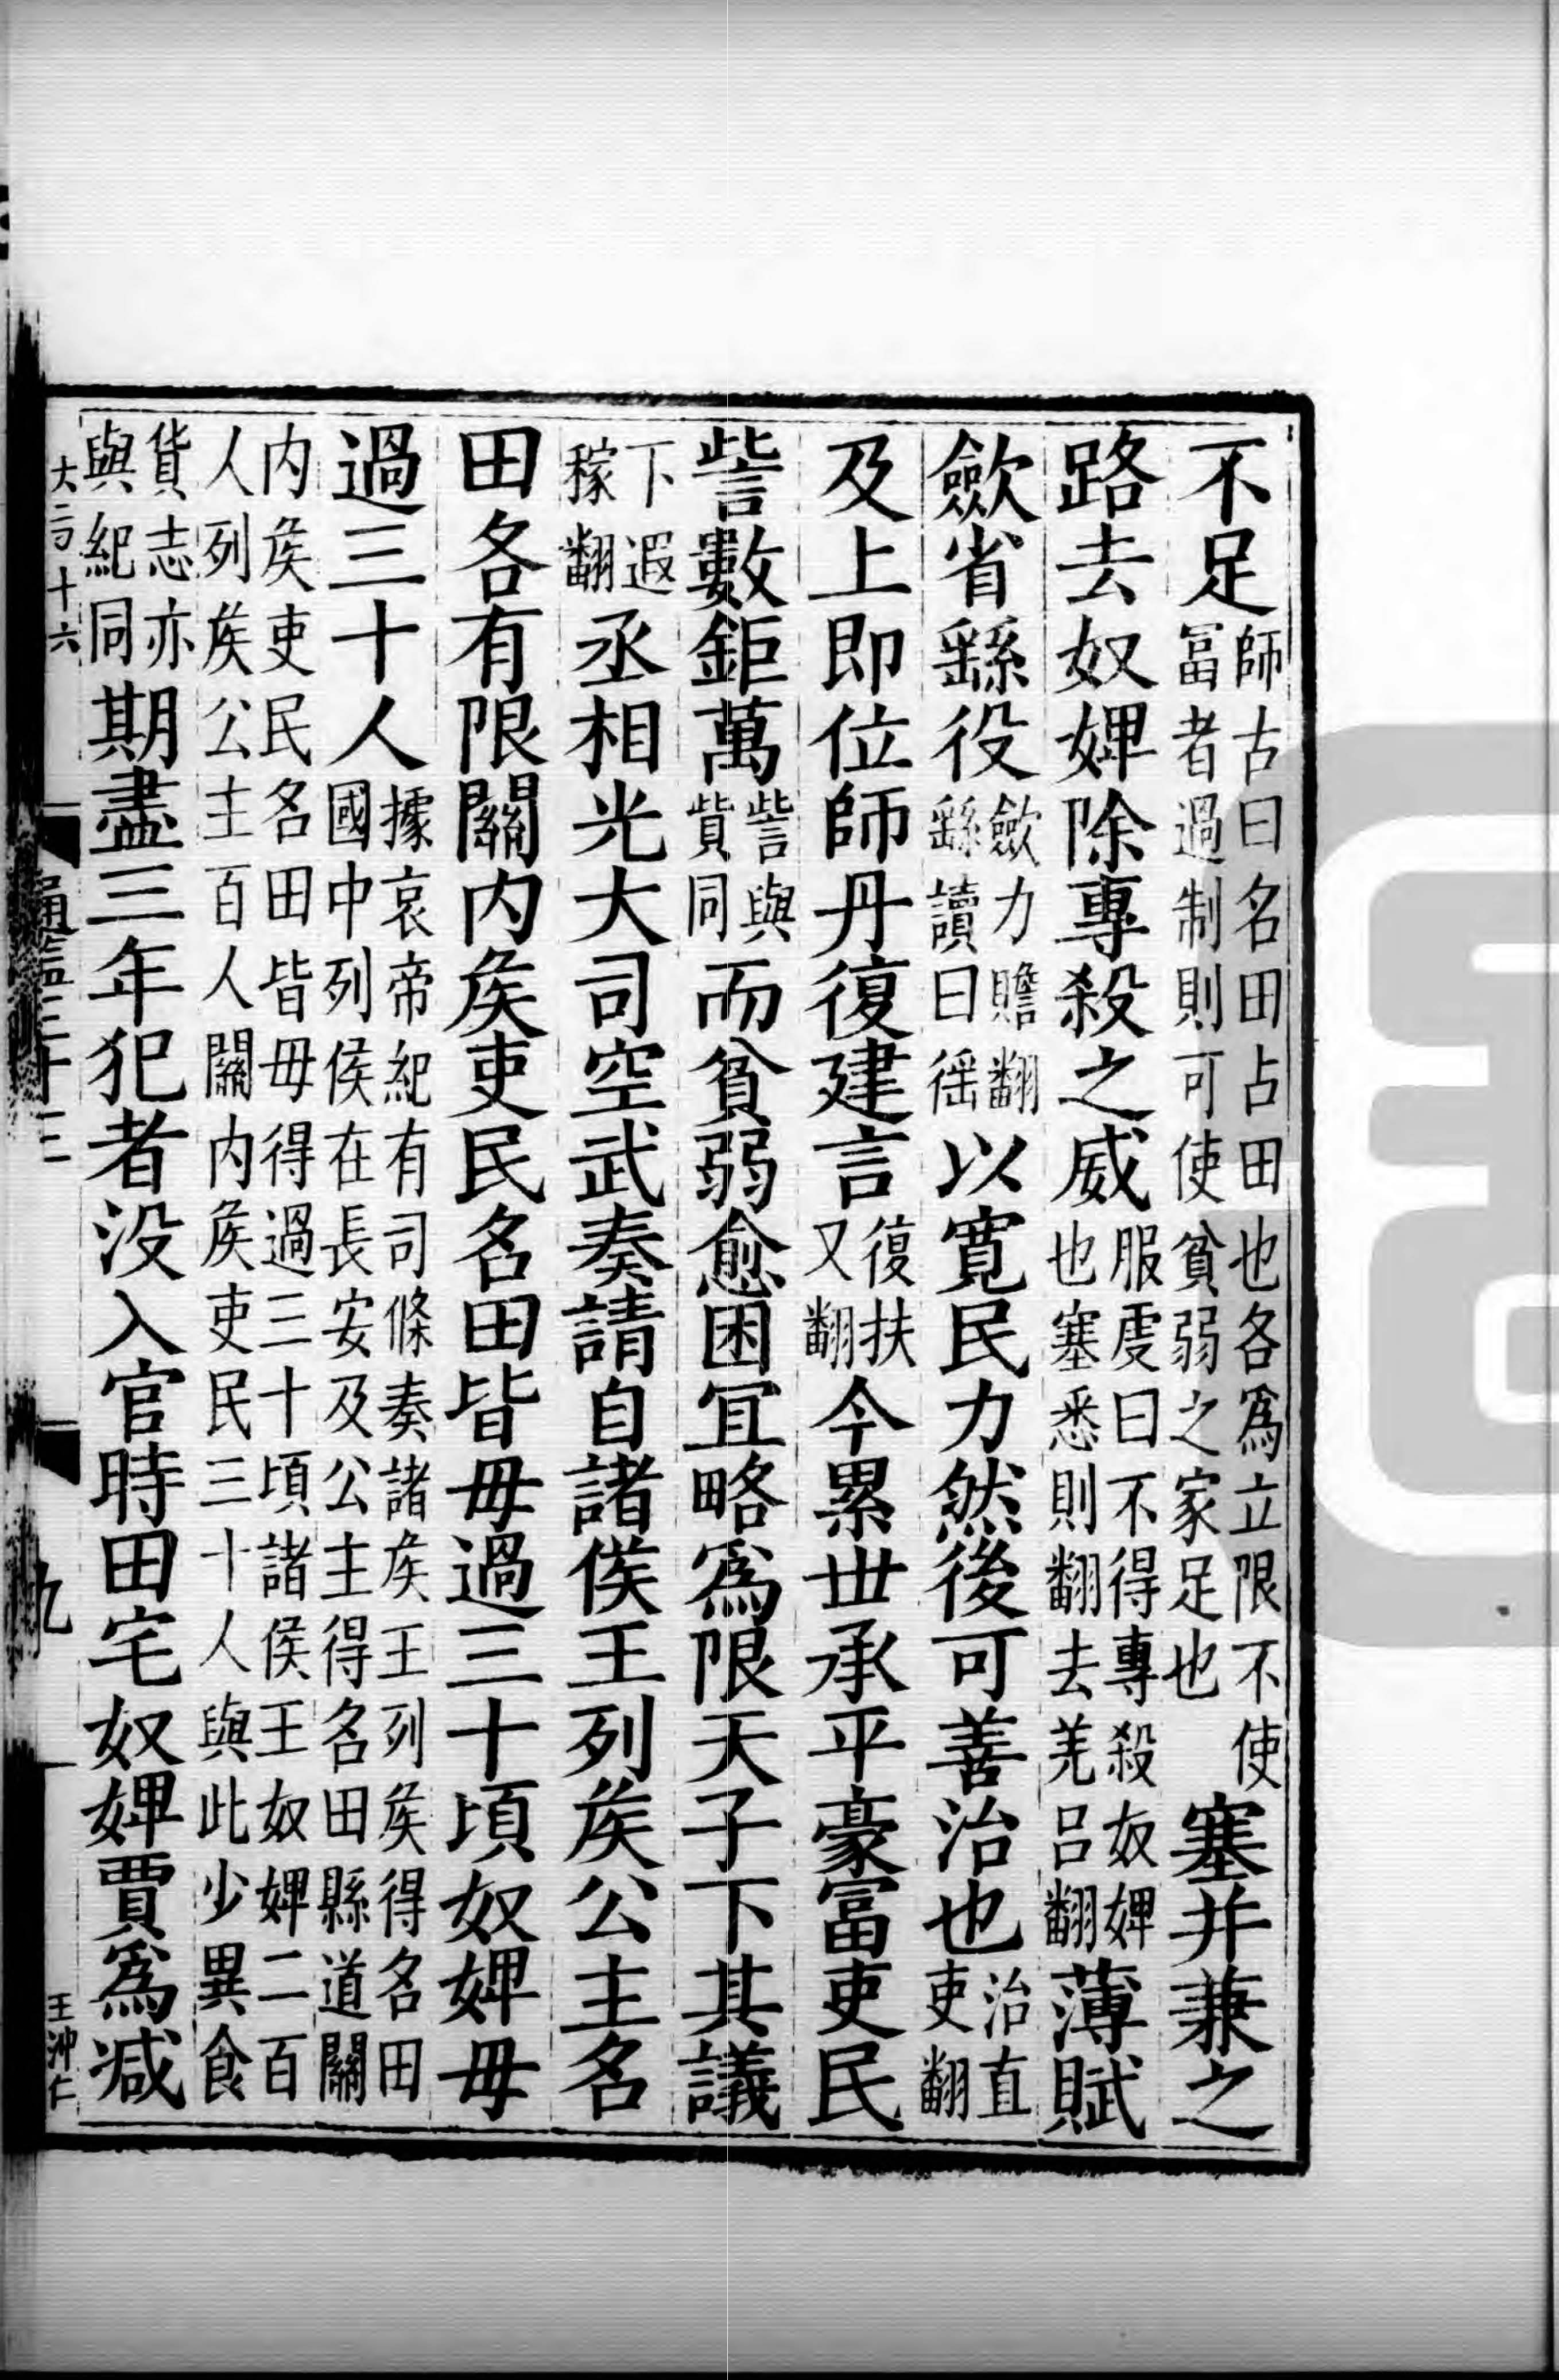 不足師古曰名田占田也各爲立限不使冨者過制則可使貧弱之家足也塞并兼之
路去奴婢除專殺之威服虔曰不得專殺奴婢也塞悉則翻去羌呂翻薄賦
斂省繇役斂力贍翻繇讀曰徭以寛民力然後可善治也治直吏翻
及上即位師丹復建言復扶又翻今累丗承平豪富吏民
訾數鉅萬訾與貲同而貧弱愈困冝略爲限天子下其議
下遐稼翻丞相光大司空武奏請自諸侯王列矦公主名
田各有限關内矦吏民名田皆毋過三十頃奴婢毋
過三十人據哀帝紀有司條奏諸矦王列矦得名田國中列侯在長安及公主得名田縣道關
内矦吏民名田皆毋得過三十頃諸侯王奴婢二百人列矦公主百人關内矦吏民三十人與此少異食
貨志亦與紀同期盡三年犯者没入官時田宅奴婢賈爲减
大二百十六
通鑑三十三
九
王沖仁